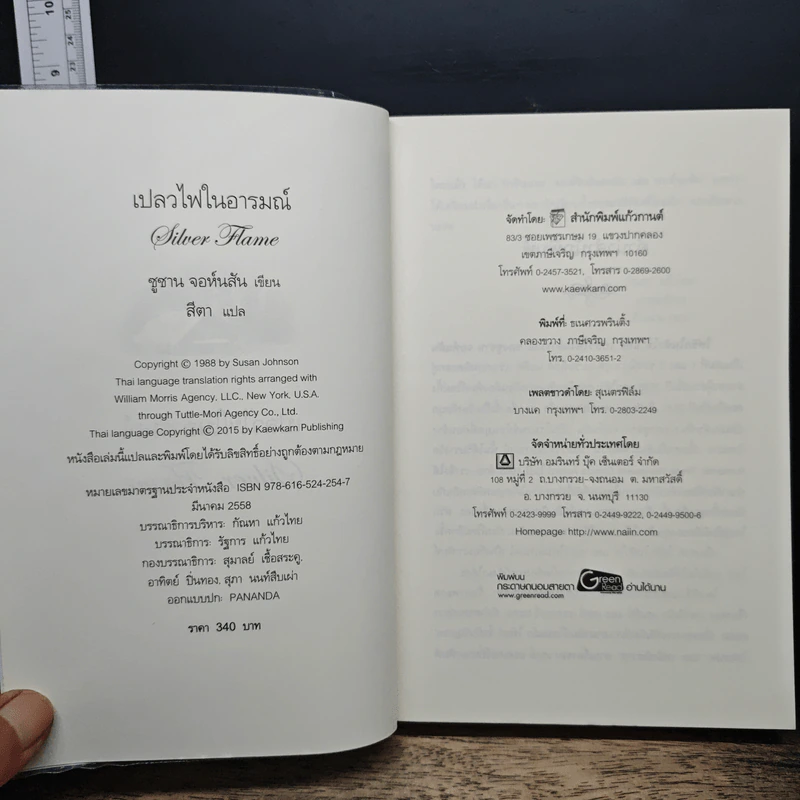 เปลวไฟในอารมณ์
Silver Flame
ซูซาน จอห์นสัน เขียน
สีตา แปล
Copyright © 1988 by Susan Johnson
Thai language translation rights arranged with
William Morris Agency, LLC., New York, U.S.A.
through Tuttle-Mori Agency Co., Ltd.
Thai language Copyright © 2015 by Kaewkarn Publishing
หนังสือเล่มนี้แปลและพิมพ์โดยได้รับลิขสิทธิ์อย่างถูกต้องตามกฎหมาย
หมายเลขมาตรฐานประจำหนังสือ ISBN 978-616-524-254-7
มีนาคม 2558
บรรณาธิการบริหาร: กัณหา แก้วไทย
บรรณาธิการ: รัฐการ แก้วไทย
กองบรรณาธิการ: สุมาลย์ เชื้อสระคู,
อาทิตย์ ปิ่นทอง, สุภา นนท์สืบเผ่า
ออกแบบปก: PANANDA
ราคา 340 บาท
จัดทำโดย: สำนักพิมพ์แก้วกานต์
83/3 ซอยเพชรเกษม 19 แขวงปากคลอง
เขตภาษีเจริญ กรุงเทพฯ 10160
โทรศัพท์ 0-2457-3521, โทรสาร 0-2869-2600
www.kaewkarn.com
พิมพ์ที่: ธเนศวรพรินติ้ง
คลองขวาง ภาษีเจริญ กรุงเทพฯ
โทร. 0-2410-3651-2
เพลตขาวดำโดย: สุเนตรฟิล์ม
บางแค กรุงเทพฯ โทร. 0-2803-2249
จัดจำหน่ายทั่วประเทศโดย
บริษัท อมรินทร์ บุ๊ค เซ็นเตอร์ จำกัด
108 หมู่ที่ 2 ถ.บางกรวย-จงถนอม ต. มหาสวัสดิ์
อ. บางกรวย จ. นนทบุรี 11130
โทรศัพท์ 0-2423-9999 โทรสาร 0-2449-9222, 0-2449-9500-6
Homepage: http://www.naiin.com
พิมพ์บน
กระดาษถนอมสายตา Green Read อ่านได้นาน
www.greenread.com